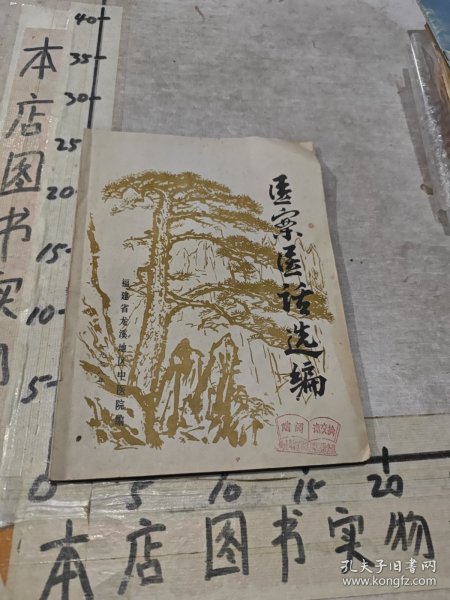 40
35
30
25
20
15
10
5
本店图书实
医案医话选编
福建省龙溪地区中医院编
赠阅 请交换
0
5
10
15
20
本店图书实物
孔夫子旧书网
www.kongfz.com